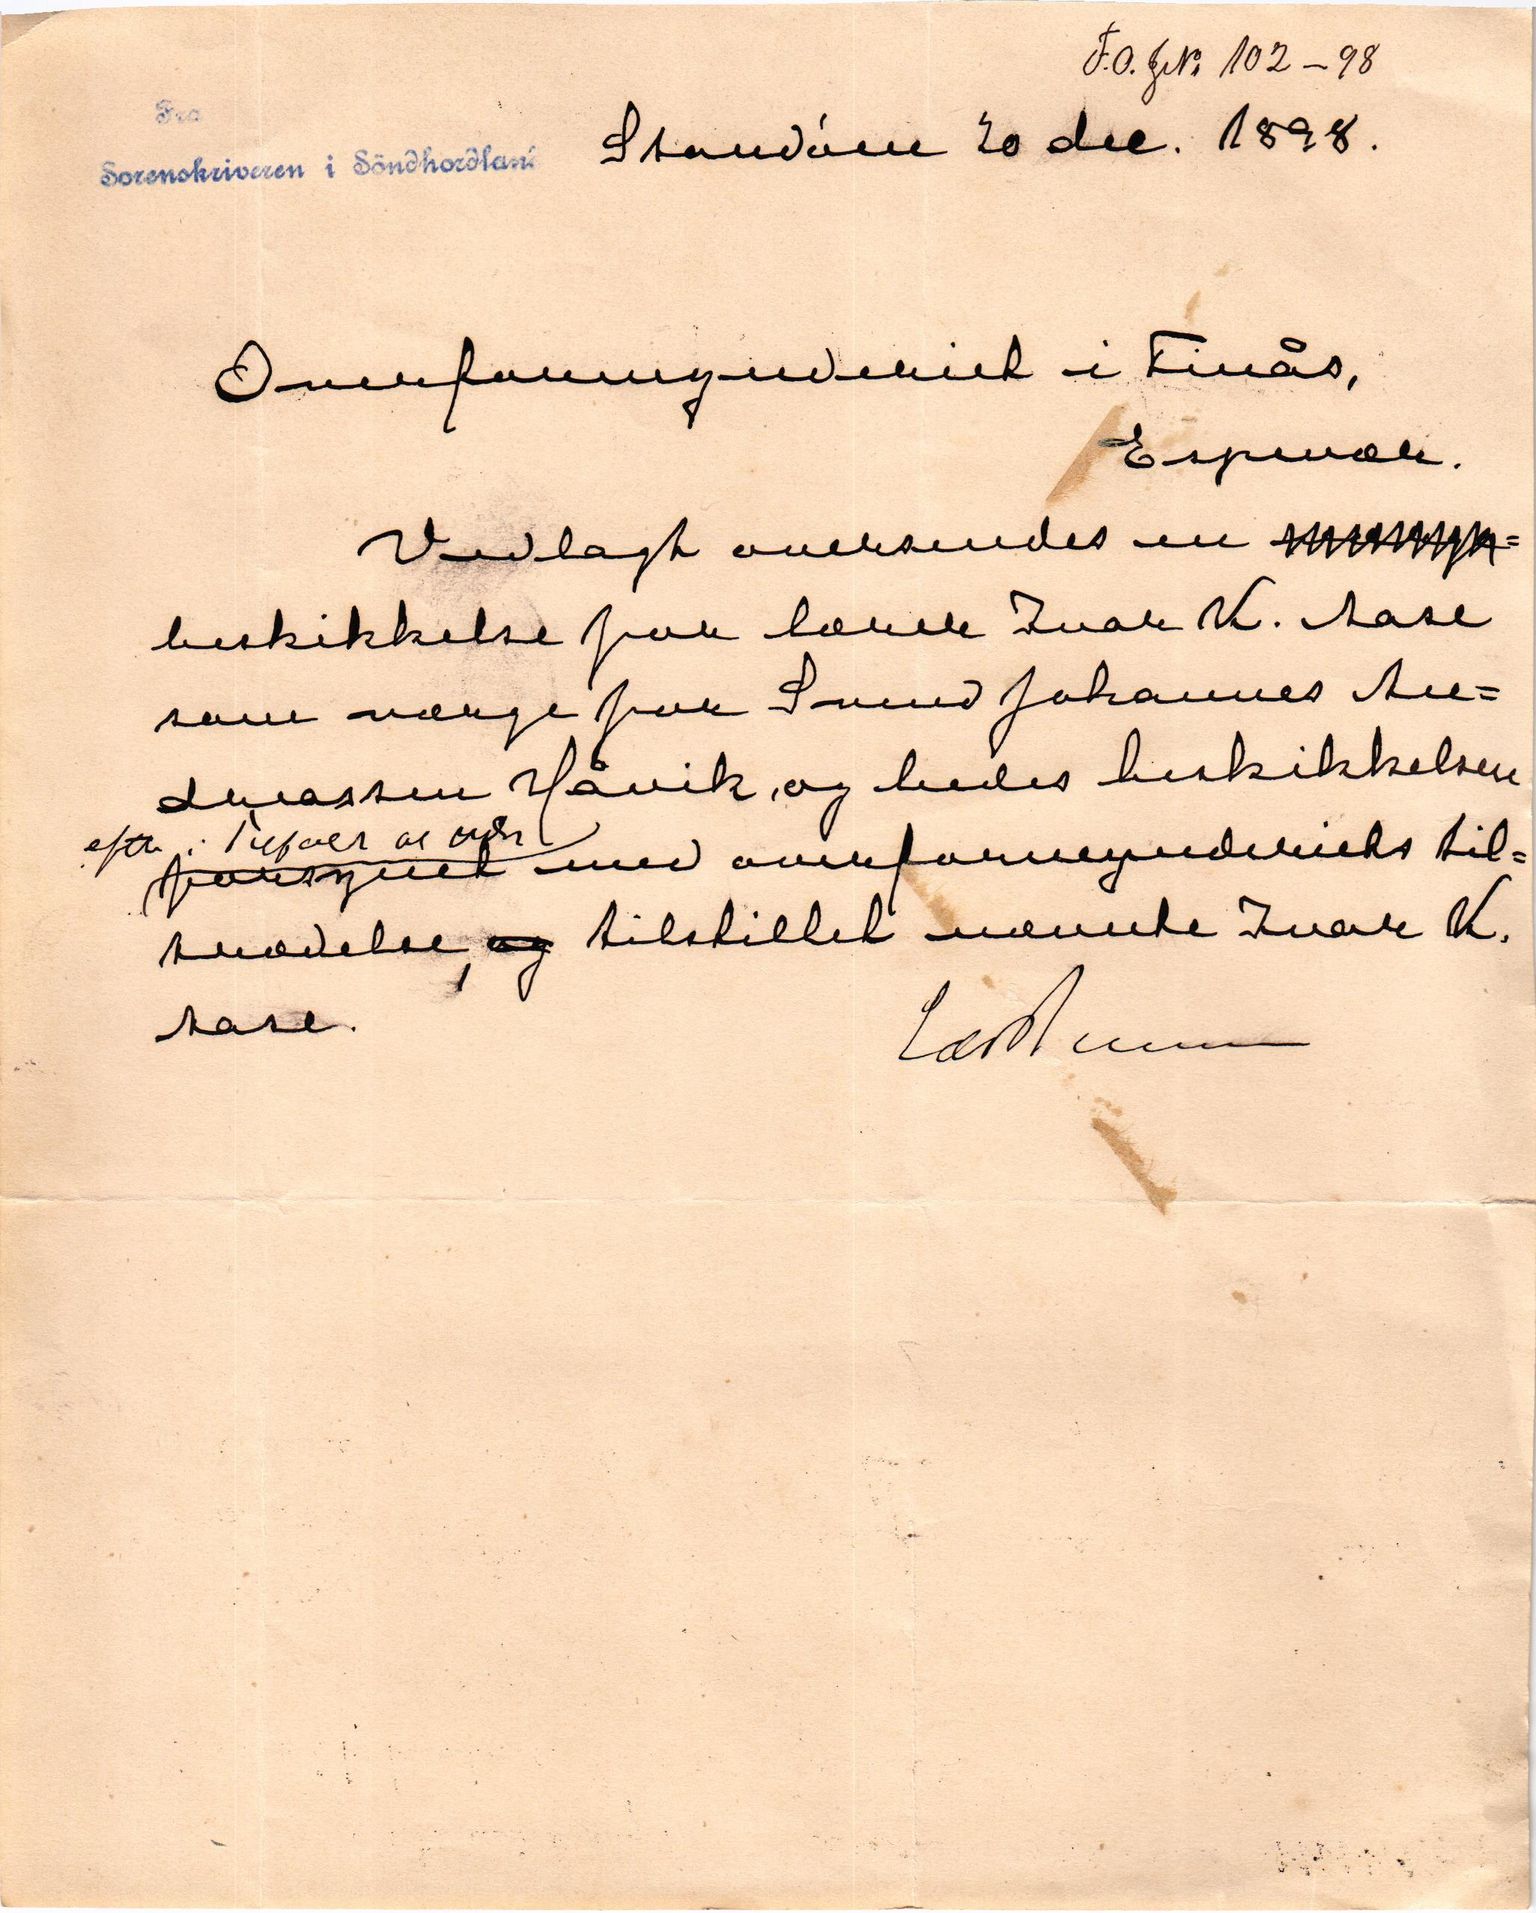 F.O. JNr 102-98
Fra
Sorenskriveren i Söndhordland
Standöen 20 dec. 1898.
Overformynderiet i Finås,
Espevær.
Vedlagt oversendes en
beskikkelse for lærer Ivar K. Aase
som værge for Svend Johannes An=
dreassen Håvik, og bedes beskikkelsen
efter i Tilfælde at være
forsynet med overformynderiets til=
trædelse, og tilstillet nævnte Ivar K.
Aase.